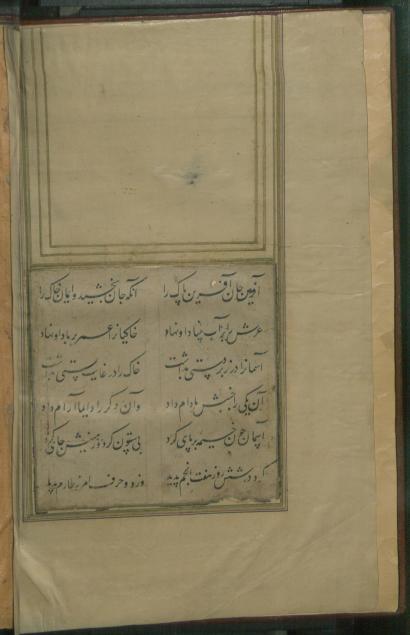 آفرین جان آفرین پاک را آنکه جان بخشید و ایمان خاک را
عرش را بر آب بنیاد او نهاد خاکیانرا عمر بر باد او نهاد
آسمانرا در زبردستی بداشت خاک را در غایت پستی بداشت
آن یکی را جنبش مادام داد وان دگر را دایما آرام داد
آسمان چون خیمه برپای کرد بی ستون کرد و زمینش جای کرد
کرد در شش روز هفت انجم پدید وز دو حرف نه طارم پدید